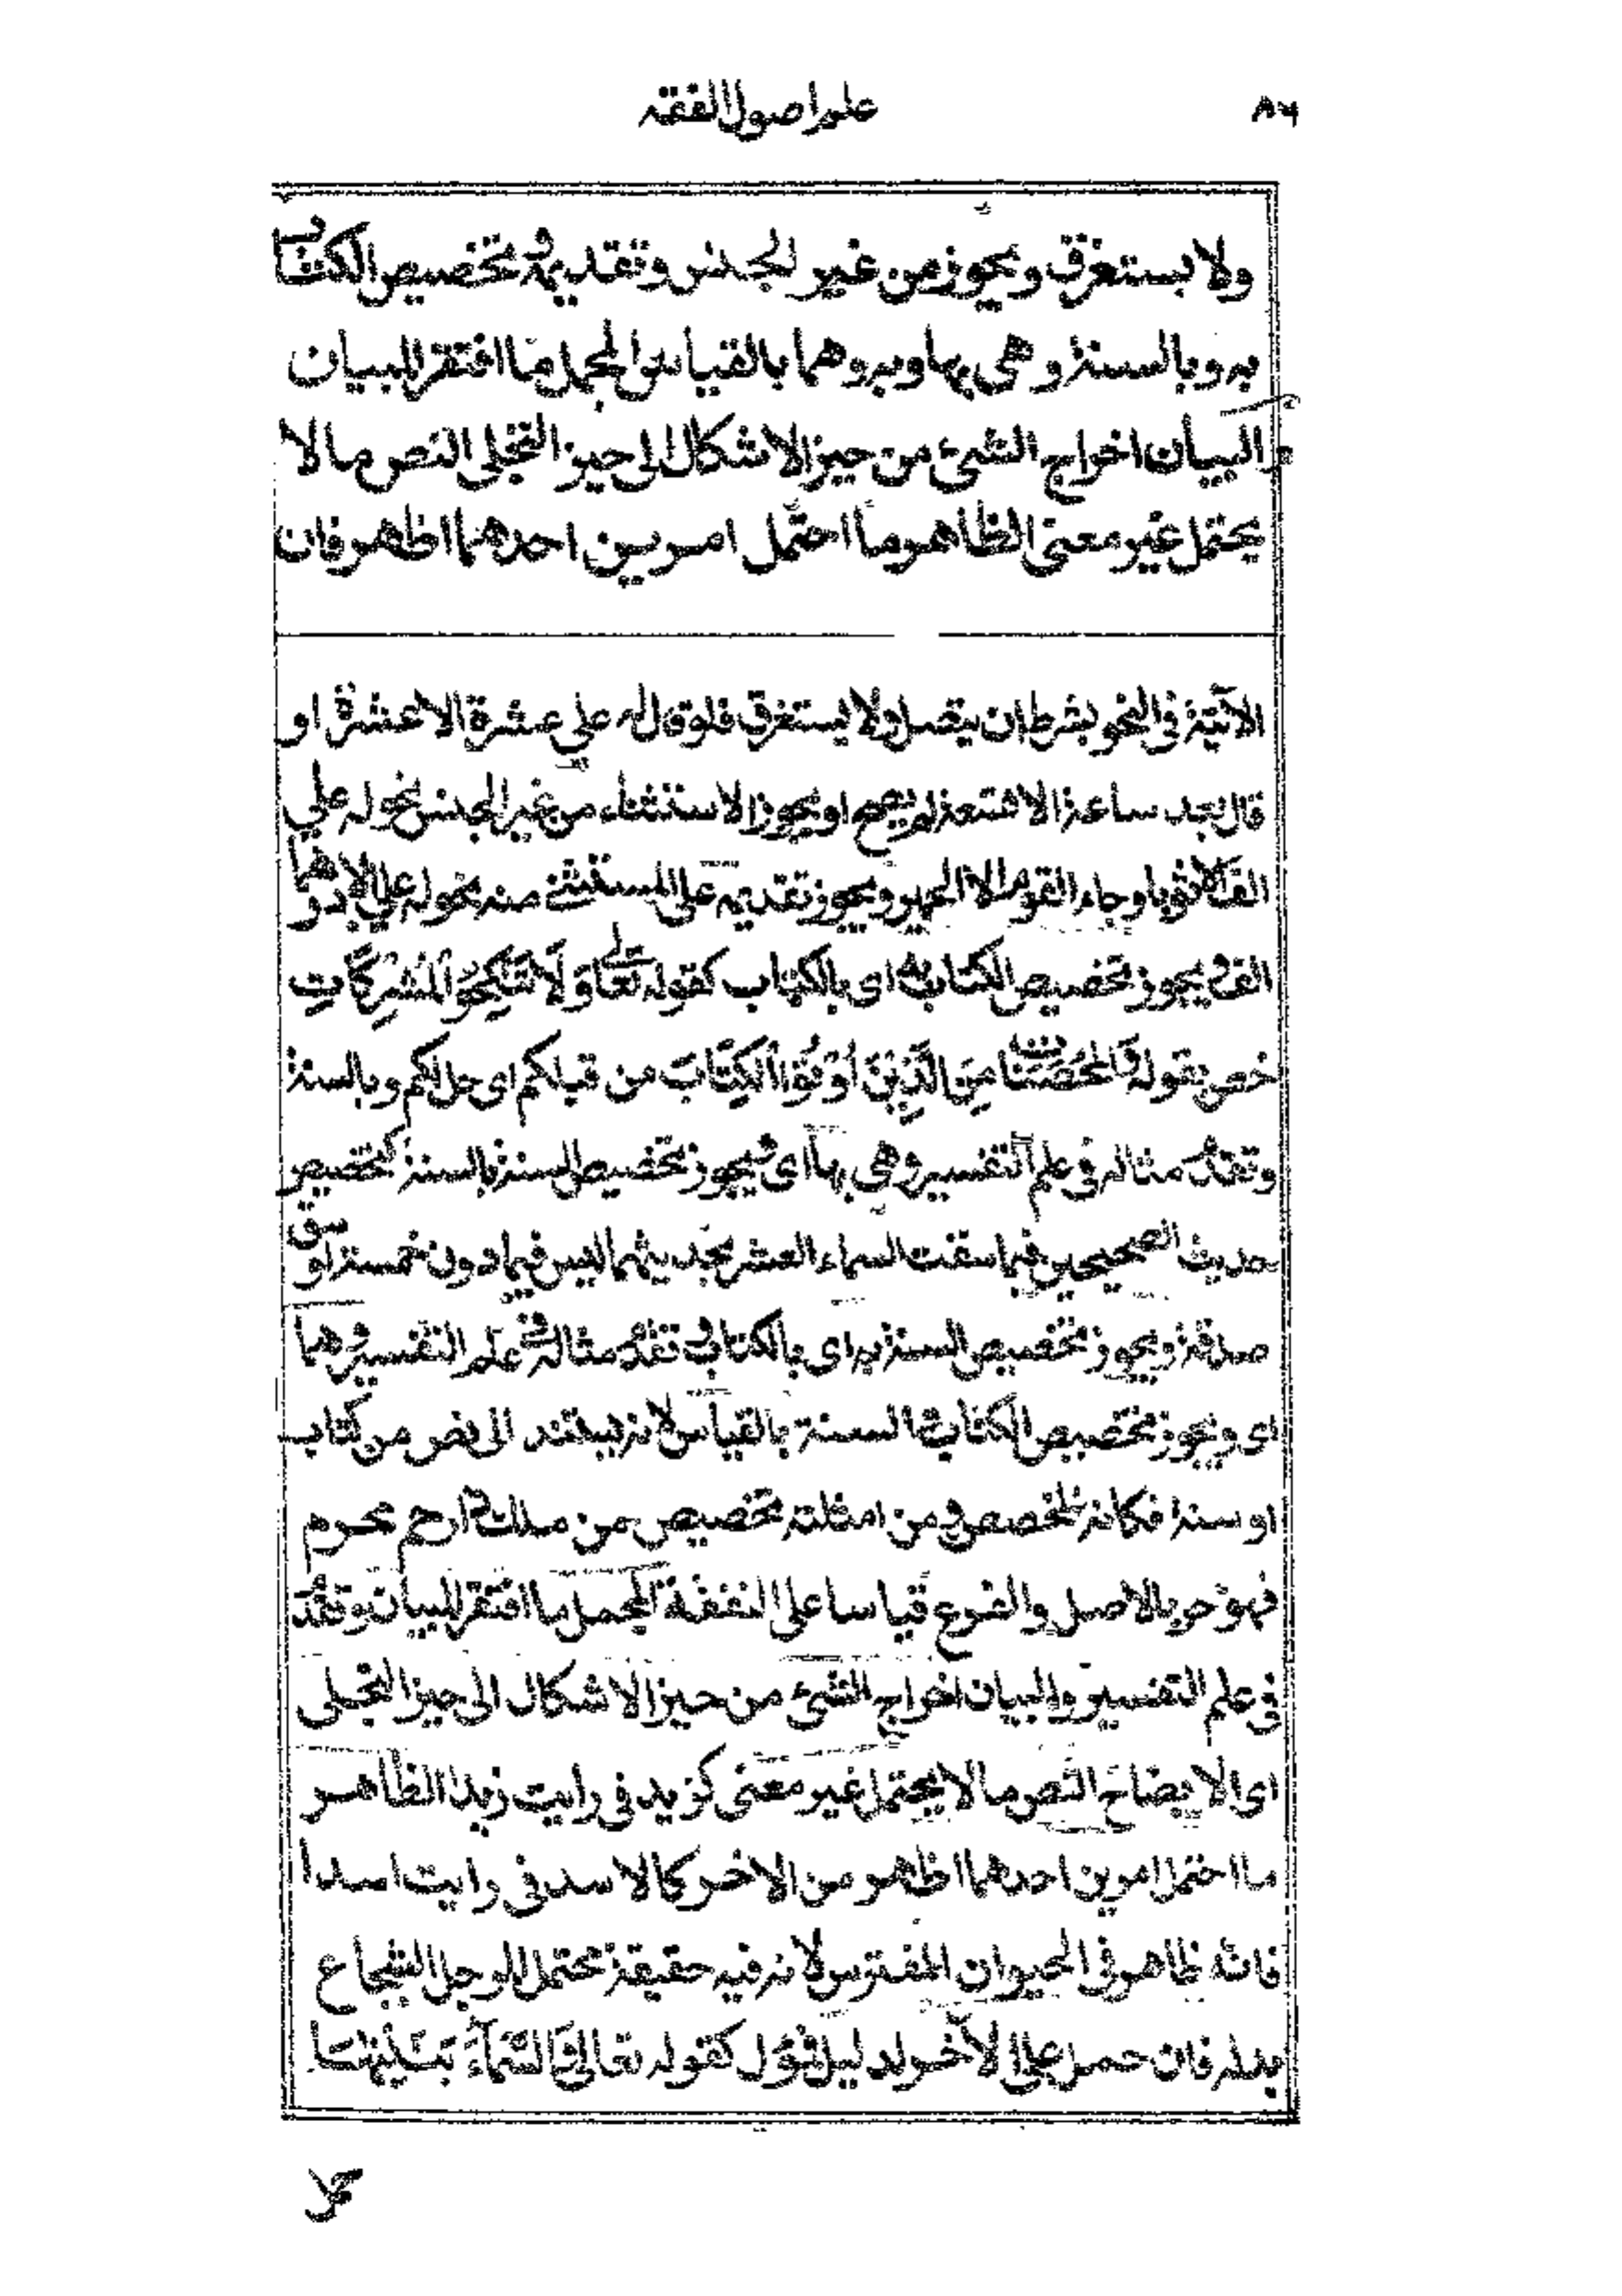 علم اصول الفقه
٨٦
ولا يستغرق ويجوز من غير الجنس وتقديمه وتخصيص الكتاب
به وبالسنة وهى بها وبه وهما بالقياس المجمل ما افتقر للبيان
والبيان اخراج الشئ من حيز الاشكال الى حيز التجلى النص ما لا
يحتمل غير معنى الظاهر ما احتمل امرين احدهما اظهر فان
الآتية فى النحو بشرط ان يتصل ولا يستغرق فلو قال له علي عشرة الا عشرة او
قال بعد ساعة الا تسعة لم يصح او يجوز الاستثناء من غير الجنس نحو له علي
الف الا ثوبا وجاء القوم الا الحمير ويجوز تقديمه على المستثنى منه نحو له علي الا درهما
الف ويجوز تخصيص الكتاب به اى بالكتاب كقوله تعالى وَلَا تَنْكِحُوا الْمُشْرِكَاتِ
خص بقوله وَالْمُحْصَنَاتُ مِنَ الَّذِيْنَ اُوْتُوا الْكِتَابَ من قبلكم اى حل لكم وبالسنة
وتقدم مثاله فى علم التفسير وهى بها اى ويجوز تخصيص السنة بالسنة كتخصيص
حديث الصحيحين فيما سقت السماء العشر بحديثهما ليس فيما دون خمسة اوسق
صدقة ويجوز تخصيص السنة به اى بالكتاب وتقدم مثاله فى علم التفسير وهما
اى ويجوز تخصيص الكتاب والسنة بالقياس لانه يستند الى نص من كتاب
او سنة فكانه المخصص ومن امثلته تخصيص من ملك ذا رحم محرم
فهو حر بالاصل والفرع قياسا على النفقة المجمل ما افتقر للبيان وتقدم
فى علم التفسير والبيان اخراج الشئ من حيز الاشكال الى حيز التجلى
اى الايضاح النص ما لا يحتمل غير معنى كزيد فى رايت زيدا الظاهر
ما احتمل امرين احدهما اظهر من الاخر كالاسد فى رايت اسدا
فانه ظاهر فى الحيوان المفترس لانه فيه حقيقة محتمل للرجل الشجاع
بدله فان حمل على الآخر لدليل فمؤل كقوله تعالى وَالسَّمَآءَ بَنَيْنٰهَا